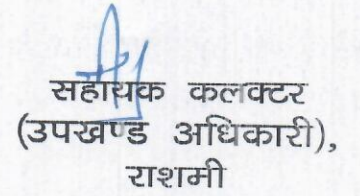 सहायक कलक्टर
(उपखण्ड अधिकारी),
राशमी